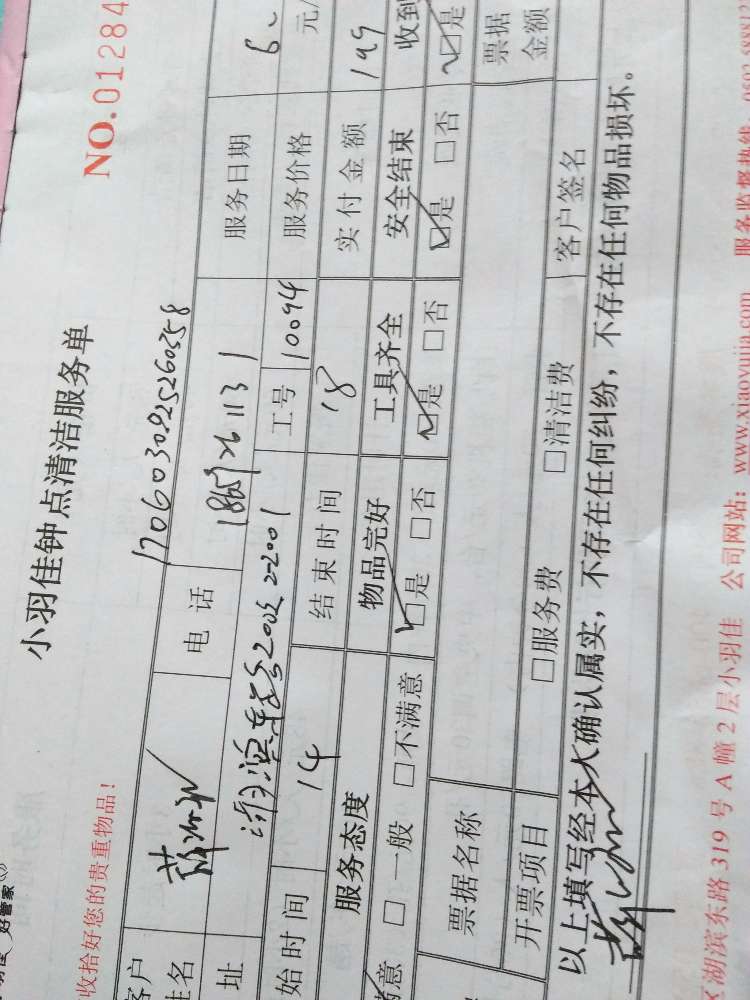 好管家
小羽佳钟点清洁服务单
NO.01284
收拾好您的贵重物品!
1706030825260358
客户
姓名
电 话
服务日期
6.
址
2-2001
工号
10094
服务价格
元/
始时间
14
结束时间
18
实付金额
199
服务态度
物品完好
工具齐全
安全结束
收到
意 □ 一般 □不满意
□是 □否
□是 □否
□是 □否
□是
票据名称
票据
金额
开票项目
□服务费
□清洁费
客户签名
以上填写经本人确认属实,不存在任何纠纷,不存在任何物品损坏。
区湖滨东路 319 号 A 幢 2 层小羽佳 公司网站: www.xiaoyujia.com 服务监督热线: